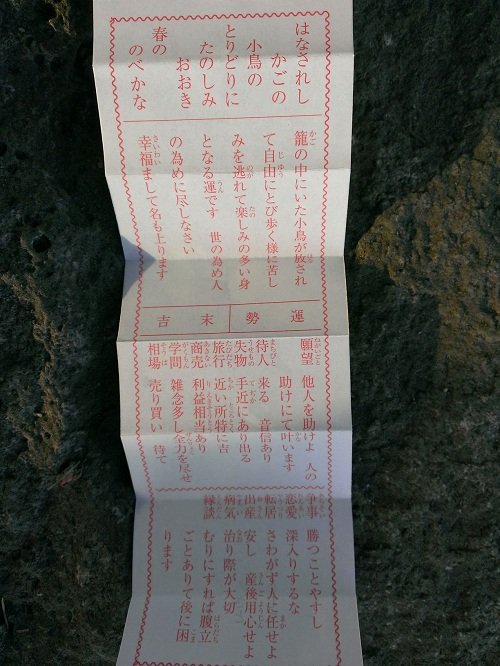 はなされし
かごの
小鳥の
とりどりに
たのしみ
おおき
春の
のべかな
籠の中にいた小鳥が放され
て自由にとび歩く様に苦し
みを逃れて楽しみの多い身
となる運です 世の為め人
の為めに尽しなさい
幸福まして名も上ります
運勢 末吉
願望 他人を助けよ 人の
助けにて叶います
待人 来る 音信あり
失物 手近にあり出る
旅行 近い所特に吉
商売 利益相当あり
学問 雑念多し全力を尽せ
相場 売り買い 待て
争事 勝つことやすし
恋愛 深入りするな
転居 さわがず人に任せよ
出産 安し 産後用心せよ
病気 治り際が大切
縁談 むりにすれば腹立
ごとありて後に困
ります